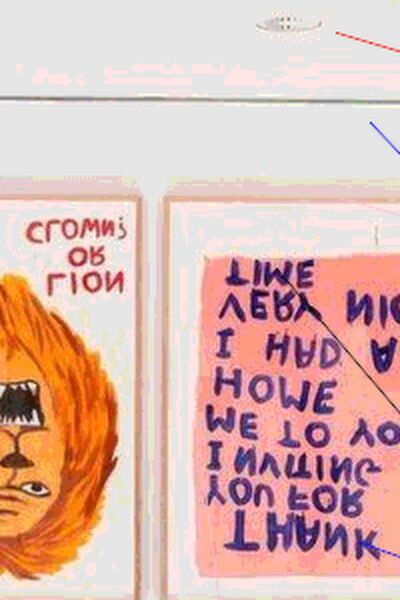 LION
OR
CLOWN?
THANK
YOU FOR
INVITING
ME TO YO
HOME
I HAD A
VERY NIC
TIME